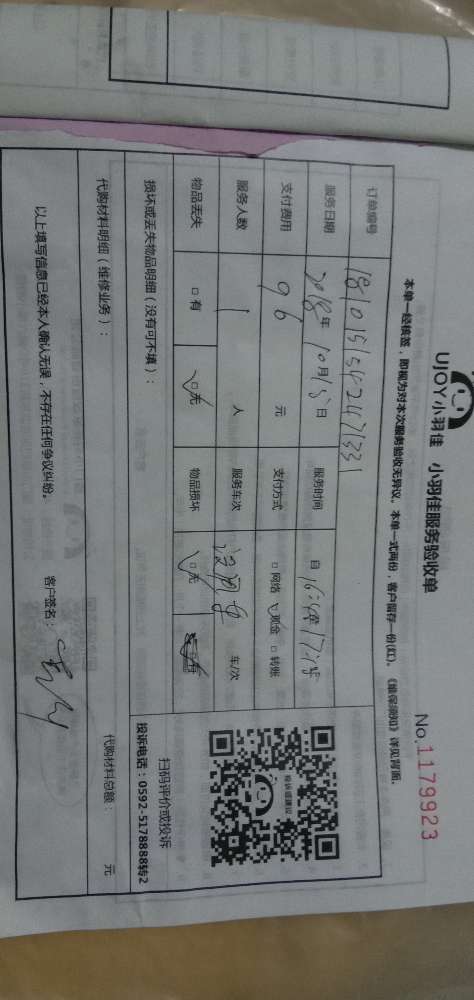 UJOY小羽佳 小羽佳服务验收单
No.1179923
本单一经核签，即视为对本次服务验收无异议。本单一式两份，客户留存一份(红)。《维保须知》详见背面。
订单编号
服务日期 2018年10月15日 服务时间 自
支付费用 96 元 支付方式 □网络 □现金 □转账
服务人数 1 人 服务车次 车/次
物品丢失 □有 □无 物品损坏 □无
损坏或丢失物品明细（没有可不填）：
投诉或建议
扫码评价或投诉
投诉电话：0592-5178888转2
代购材料明细（维修业务）： 代购材料总额： 元
以上填写信息已经本人确认无误，不存在任何争议纠纷。 客户签名：